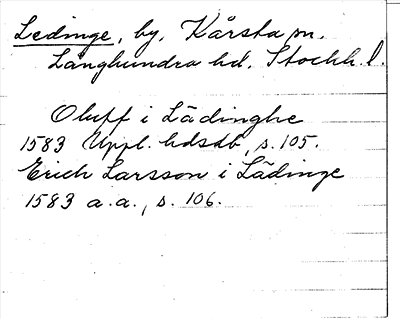 Ledinge, by, Kårsta sn.
Långhundra hd. Stockh. l.
Oluff i Lädinghe
1583 Uppl. hdsdb, s. 105.
Erich Larsson i Lädinge
1583 a.a., s. 106.